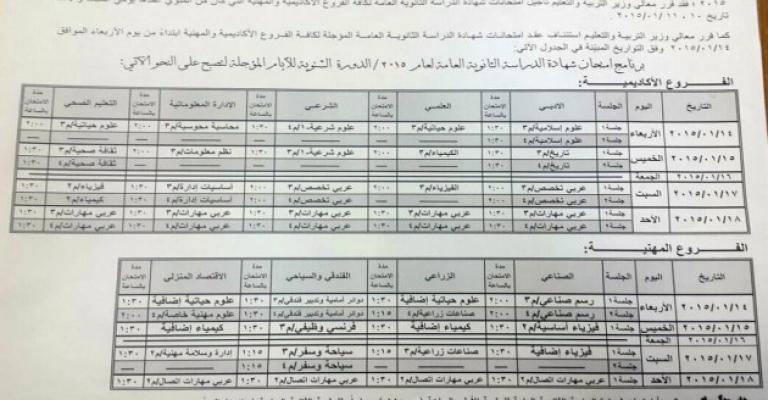 ٢٠١٥ : فقد قرر معالي وزير التربية والتعليم تأجيل امتحانات شهادة الدراسة الثانوية العامة لكافة الفروع الأكاديمية والمهنية التي كان من المنوي عقدها يومي السبت
تاريخ ١٠ ، ٢٠١٥/٠١/١١ .
كما قرر معالي وزير التربية والتعليم استئناف عقد امتحانات شهادة الدراسة الثانوية العامة المؤجلة لكافة الفروع الأكاديمية والمهنية ابتداءً من يوم الأربعاء الموافق
٢٠١٥/٠١/١٤ وفق التواريخ المبيّنة في الجدول الآتي:
برنامج امتحان شهادة الدراسة الثانوية العامة لعام ٢٠١٥/ الدورة الشتوية للأيام المؤجلة لتصبح على النحو الآتي:
الفروع الأكاديمية:
التاريخ اليوم الجلسة الادبي مدة الامتحان بالساعة العلمي مدة الامتحان بالساعة الشرعي مدة الامتحان بالساعة الادارة المعلوماتية مدة الامتحان بالساعة التعليم الصحي مدة الامتحان بالساعة
٢٠١٥/٠١/١٤ الأربعاء جلسة١ علوم إسلامية/م٣ ١:٣٠ علوم حياتية/م٣ ٢:٠٠ علوم شرعية-١/م٤ ١:٣٠ محاسبة محوسبة/م٣ ٢:٠٠ علوم حياتية/م٣ ٢:٠٠
جلسة٢ علوم إسلامية/م٤ ١:٣٠
٢٠١٥/٠١/١٥ الخميس جلسة١ تاريخ/م٣ ١:٣٠ الكيمياء/م٣ ٢:٠٠ علوم شرعية-١/م٣ ١:٣٠ نظم معلومات/م٣ ١:٣٠ ثقافة صحية/م٣
جلسة٢ تاريخ/م٤ ١:٣٠ ثقافة صحية/م٤ ١:٣٠
٢٠١٥/٠١/١٦ الجمعة
٢٠١٥/٠١/١٧ السبت جلسة١ عربي تخصص/م٣ ٢:٠٠ الفيزياء/م٣ ٢:٠٠ عربي تخصص/م٣ ٢:٠٠ أساسيات إدارة/م٣ فيزياء/م٢ ١:٣٠
جلسة٢ عربي تخصص/م٤ ٢:٠٠ عربي تخصص/م٤ ٢:٠٠ أساسيات إدارة/م٤ كيمياء/م٢ ١:٣٠
٢٠١٥/٠١/١٨ الأحد جلسة١ عربي مهارات/م٣ ١:٣٠ عربي مهارات/م٣ ١:٣٠ عربي مهارات/م٣ ١:٣٠ عربي مهارات/م٣ ١:٣٠ عربي مهارات/م٣ ١:٣٠
جلسة٢ عربي مهارات/م٤ ١:٣٠ عربي مهارات/م٤ ١:٣٠ عربي مهارات/م٤ ١:٣٠ عربي مهارات/م٤ ١:٣٠ عربي مهارات/م٤ ١:٣٠
الفروع المهنية:
التاريخ اليوم الجلسة الصناعي مدة الامتحان بالساعة الزراعي مدة الامتحان بالساعة الفندقي والسياحي مدة الامتحان بالساعة الاقتصاد المنزلي مدة الامتحان بالساعة
٢٠١٥/٠١/١٤ الأربعاء جلسة١ رسم صناعي/م٣ ٢:٠٠ علوم حياتية إضافية ١:٣٠ دوائر أمامية وتدبير فندقي/م٣ ١:٣٠ علوم حياتية إضافية ١:٣٠
جلسة٢ رسم صناعي/م٤ ٢:٠٠ صناعات زراعية/م٤ ١:١٥ دوائر أمامية وتدبير فندقي/م٤ ١:٣٠ علوم مهنية خاصة/م٤ ٢:٠٠
٢٠١٥/٠١/١٥ الخميس جلسة١ فيزياء أساسية/م٢ ١:٣٠ كيمياء إضافية ١:٣٠ فرنسي وظيفي/م٣ ١:٣٠ كيمياء إضافية ١:٣٠
٢٠١٥/٠١/١٦ الجمعة
٢٠١٥/٠١/١٧ السبت جلسة١ فيزياء إضافية ١:٣٠ صناعات زراعية/م٣ ١:١٥ سياحة وسفر/م٣ ١:١٥ إدارة وسلامة مهنية/م٢ ١:٣٠
جلسة٢ سياحة وسفر/م٤ ١:١٥
٢٠١٥/٠١/١٨ الأحد جلسة١ عربي مهارات اتصال/م٢ ١:٣٠ عربي مهارات اتصال/م٢ ١:٣٠ عربي مهارات اتصال/م٢ ١:٣٠ عربي مهارات اتصال/م٢ ١:٣٠